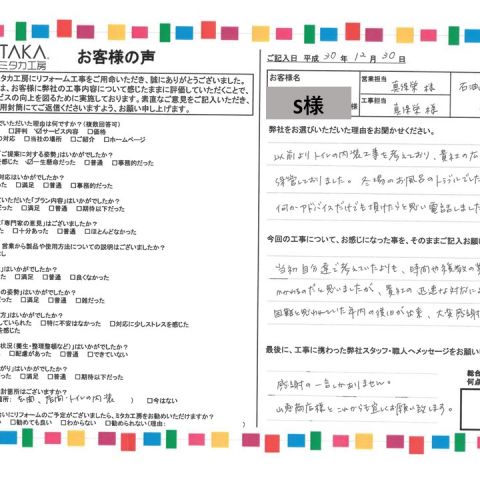 TAKA.
ミタカ工房
お客様の声
タカ工房にリフォーム工事をご用命いただき、誠にありがとうございました。
は、お客様に弊社の工事内容について感じたままに評価していただくことで、
ビスの向上を図るために実施しております。素直なご意見をご記入いただき、
用封筒にてご返信くださいますよう、お願い申し上げます。
いただいた理由は何ですか?(複数回答可)
□評判 ☑サービス内容 □価格
□当社の場所 □ご紹介 □ホームページ
「ご提案に対する姿勢」はいかがでしたか?
感じた ☑一生懸命だった □普通 □事務的だった
対応はいかがでしたか?
□満足 □普通 □事務的だった
いただいた「プラン内容」はいかがでしたか?
った □満足 □普通 □期待以下だった
「専門家の意見」はございましたか?
った □十分あった □普通 □ほとんどなかった
営業から製品や使用方法についての説明はございましたか?
」はいかがでしたか?
った □満足 □普通 □良くなかった
の姿勢」はいかがでしたか?
った □普通 □雑だった
方」はいかがでしたか?
していられた □特に不安はなかった □対応に少しストレスを感じた
状況(養生・整理整頓など)はいかがでしたか?
□配慮があった □普通 □できていない
がり」はいかがでしたか?
った □満足 □普通 □期待以下だった
討箇所はございますか?
箇所: 玄関、居間・トイレの内装 ) □今はない
会いにリフォームのご予定がございましたら、ミタカ工房をお勧めいただけますか?
□勧めても良い □わからない □勧められない(理由: )
ご記入日 平成 30 年 12 月 30 日
お客様名
S様
様
営業担当
真保栄 様
工事担当
真保栄 様
弊社をお選びいただいた理由をお聞かせください。
以前よりトイレの内装工事を考えており、貴社の広
しておりました。冬場のお風呂のトラブルでした
何かアドバイスだけでも頂けたらと思い電話しました
今回の工事について、お感じになった事を、そのままご記入お願い
当初自分達で考えていたよりも、時間や複数の業
かかるものだと思いましたが、貴社の迅速な対応によ
困難と思われていた年内の復旧が出来、大変感謝
最後に、工事に携わった弊社スタッフ・職人へメッセージをお願い
感謝の一言しかありません。
様とこれからも宜しくお願い致します。
総合
何点